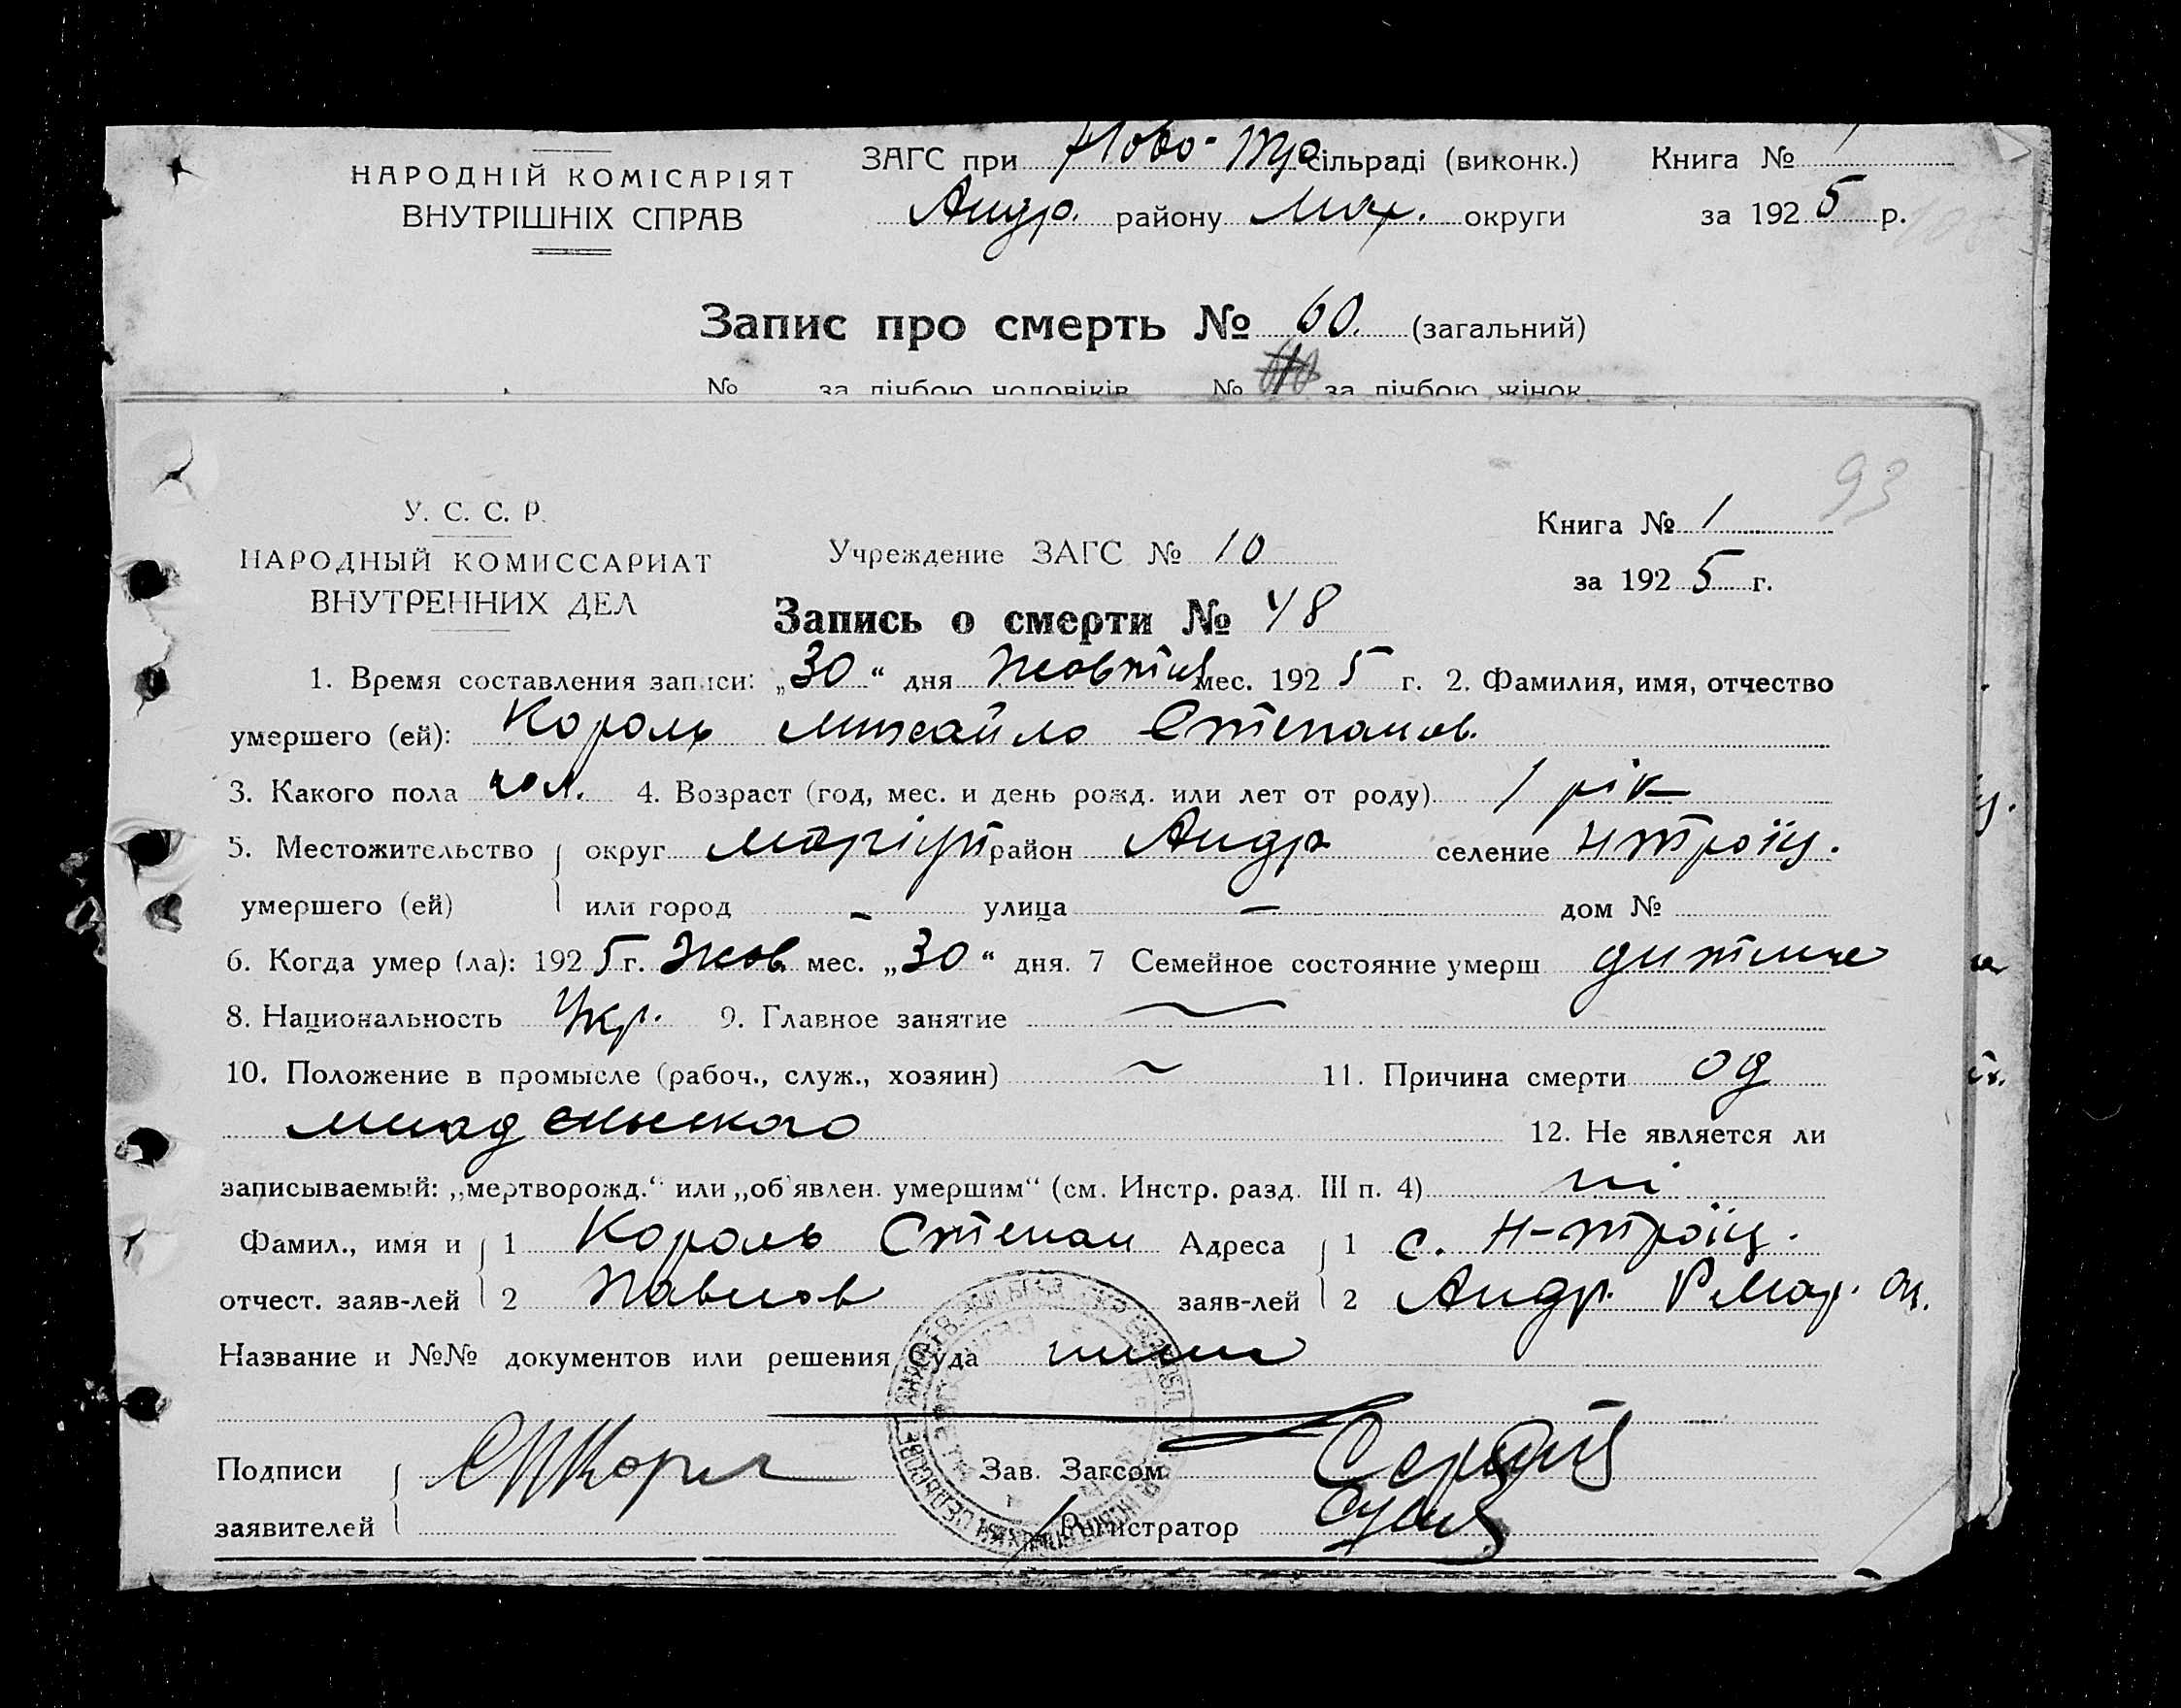 НАРОДНІЙ КОМІСАРІЯТ
ВНУТРІШНІХ СПРАВ
ЗАГС при Ново-Тро сільраді (виконк.) Книга №
Андр. району Мар. округи за 1925 р.
Запис про смерть № 60. (загальний)
№ за лічбою чоловіків № за лічбою жінок
93
У. С. С. Р.
НАРОДНЫЙ КОМИССАРИАТ
ВНУТРЕННИХ ДЕЛ
Учреждение ЗАГС № 10
Книга № 1
за 1925 г.
Запись о смерти № 48
1. Время составления записи: „30“ дня Жовтня мес. 1925 г. 2. Фамилия, имя, отчество
умершего (ей): Король Михайло Степанов.
3. Какого пола чол. 4. Возраст (год, мес. и день рожд. или лет от роду) 1 рік
5. Местожительство округ Маріуп район Андр селение Н троїц.
умершего (ей) или город - улица — дом №
6. Когда умер (ла): 1925 г. Жов. мес. „30“ дня. 7 Семейное состояние умерш дитина
8. Национальность Укр. 9. Главное занятие
10. Положение в промысле (рабоч., служ., хозяин) 11. Причина смерти од
младенського 12. Не является ли
записываемый: „мертворожд.“ или „об'явлен. умершим“ (см. Инстр. разд. III п. 4) ні
Фамил., имя и 1 Король Степан Адреса 1 с. Н-троїц.
отчест. заяв-лей 2 Павлов заяв-лей 2 Андр. Р Мар. Ок.
Название и №№ документов или решения Суда
Подписи Зав. Загсом
заявителей Регистратор